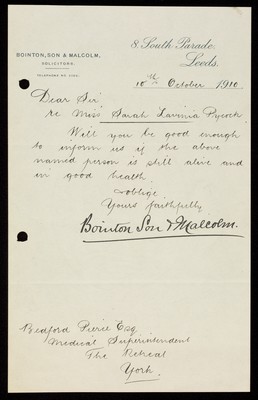 BOINTON, SON & MALCOLM,
SOLICITORS.
8. South Parade.
Leeds.
10th October 1910
Dear Sir
re Miss Sarah Lavinia Pycock
Will you be good enough
to inform us if the above
named person is still alive and
in good health
& oblige
Yours faithfully
Bointon Son & Malcolm.
Bedford Pierce Esq
Medical Superintendent
The Retreat
York.